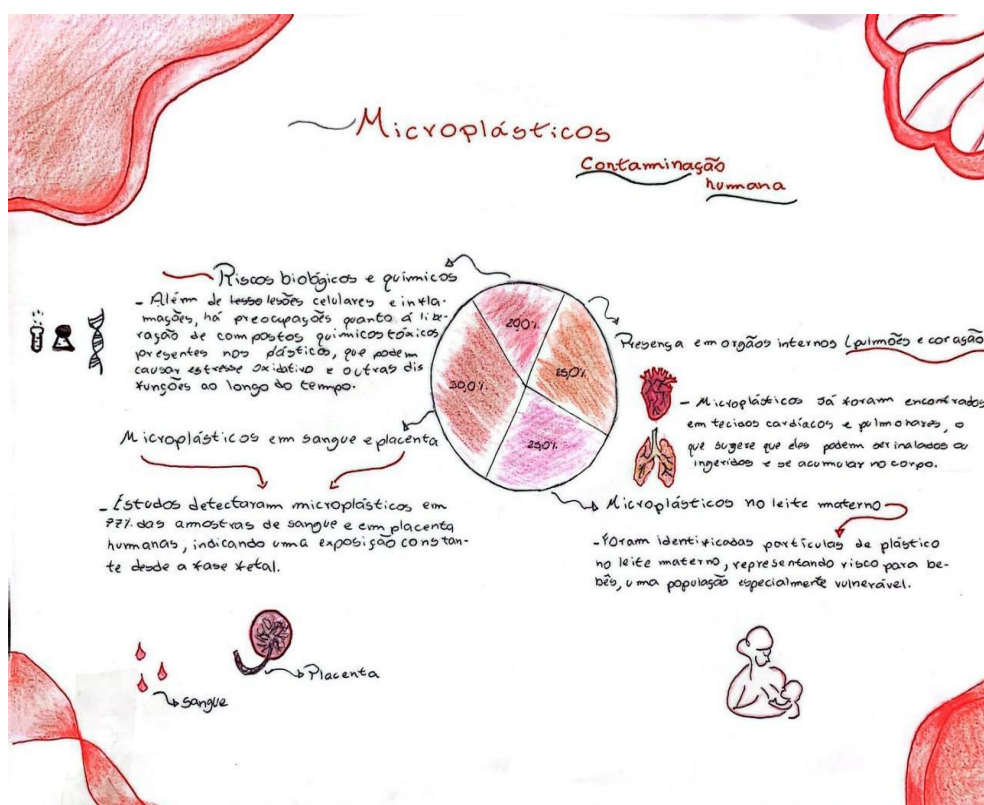 Microplásticos
Contaminação
humana
Riscos biológicos e químicos
- Além de lesso lesões celulares e infla-
mações, há preocupações quanto á libe-
ração de compostos químicos tóxicos
presentes nos plásticos, que podem
causar estresse oxidativo e outras dis
funções ao longo do tempo.
20,0%
25,0%
30,0%
25,0%
Presença em orgãos internos (pulmões e coração
- Microplásticos já foram encontrados
em tecidos cardíacos e pulmonares, o
que sugere que eles podem ser inalados ou
ingeridos e se acumular no corpo.
Microplásticos em sangue e placenta
- Estudos detectaram microplásticos em
77% das amostras de sangue e em placenta
humanas, indicando uma exposição constan-
te desde a fase fetal.
Microplásticos no leite materno
- Foram identificadas partículas de plástico
no leite materno, representando risco para be-
bês, uma população especialmente vulnerável.
Placenta
sangue